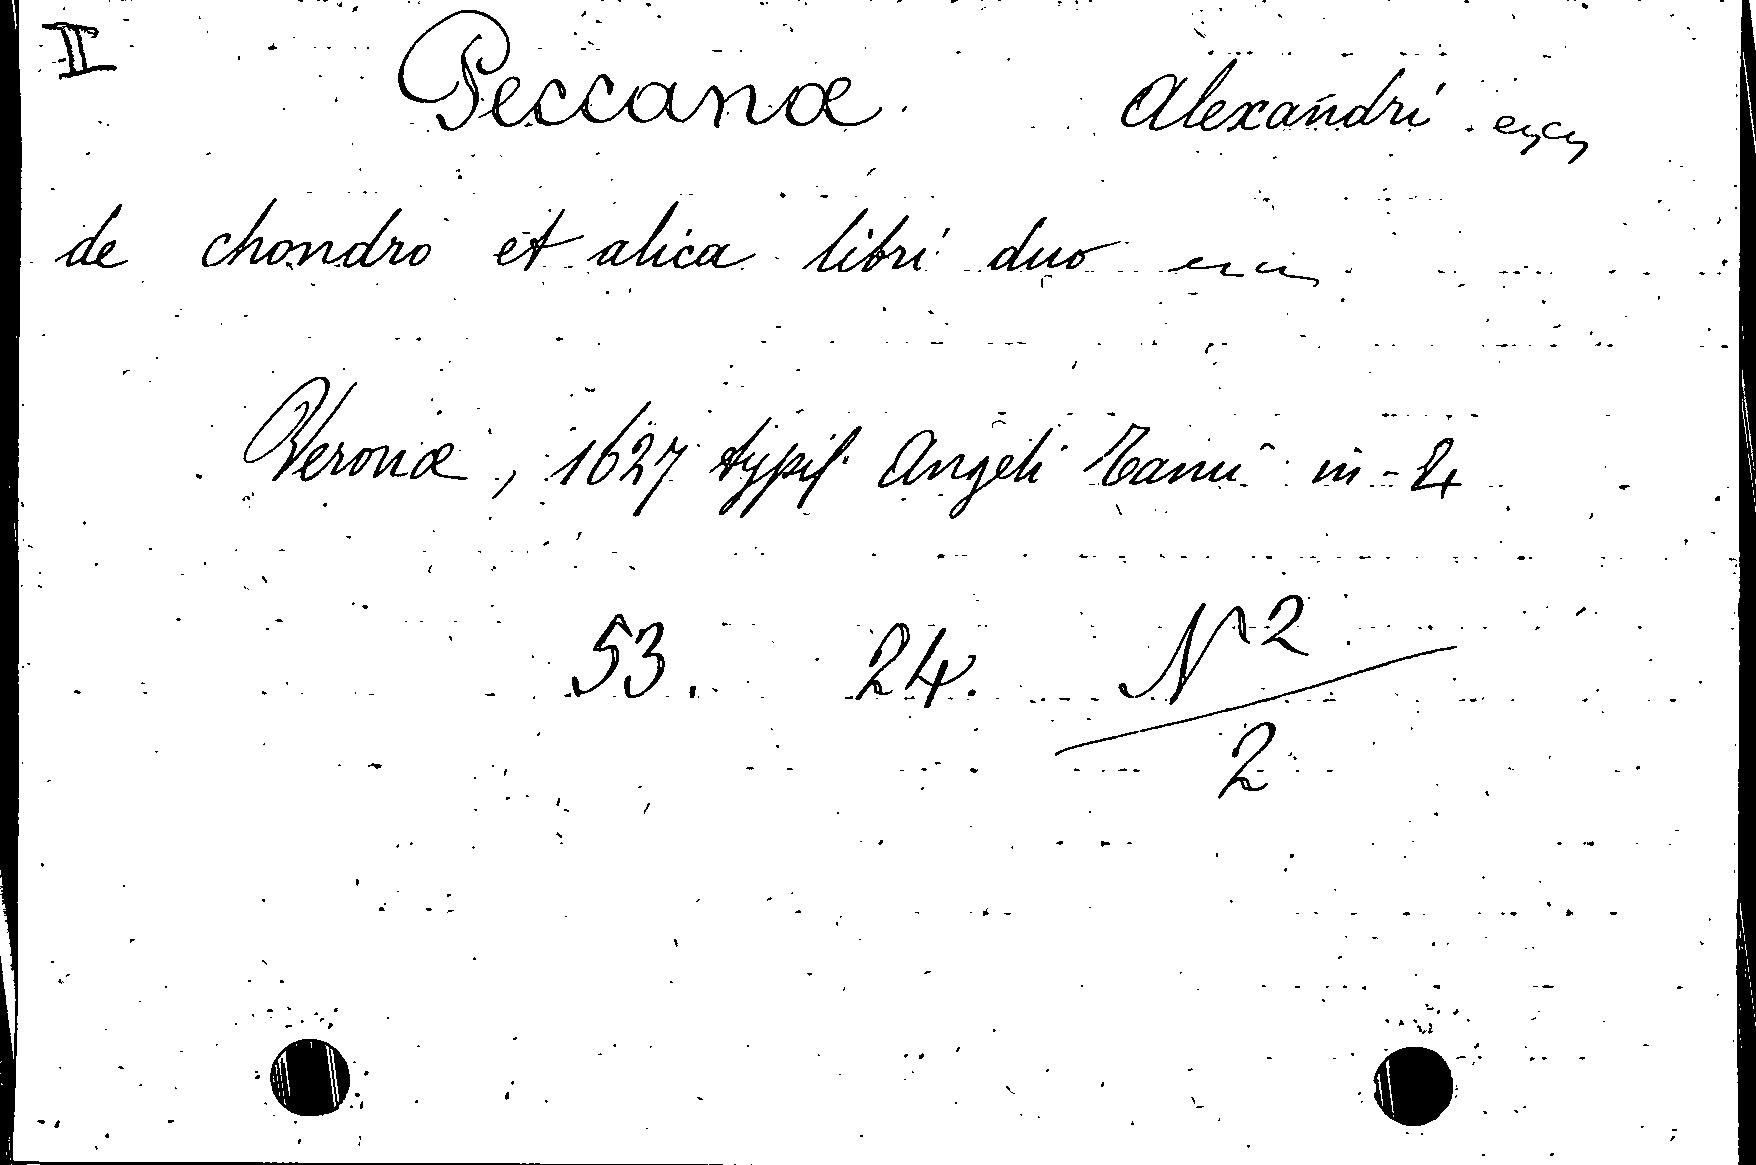 II Peccanæ Alexandri
de chondro et alica libri duo
Veronæ, 1627 typis Angeli Tami in-4
53. 24. N 2
2